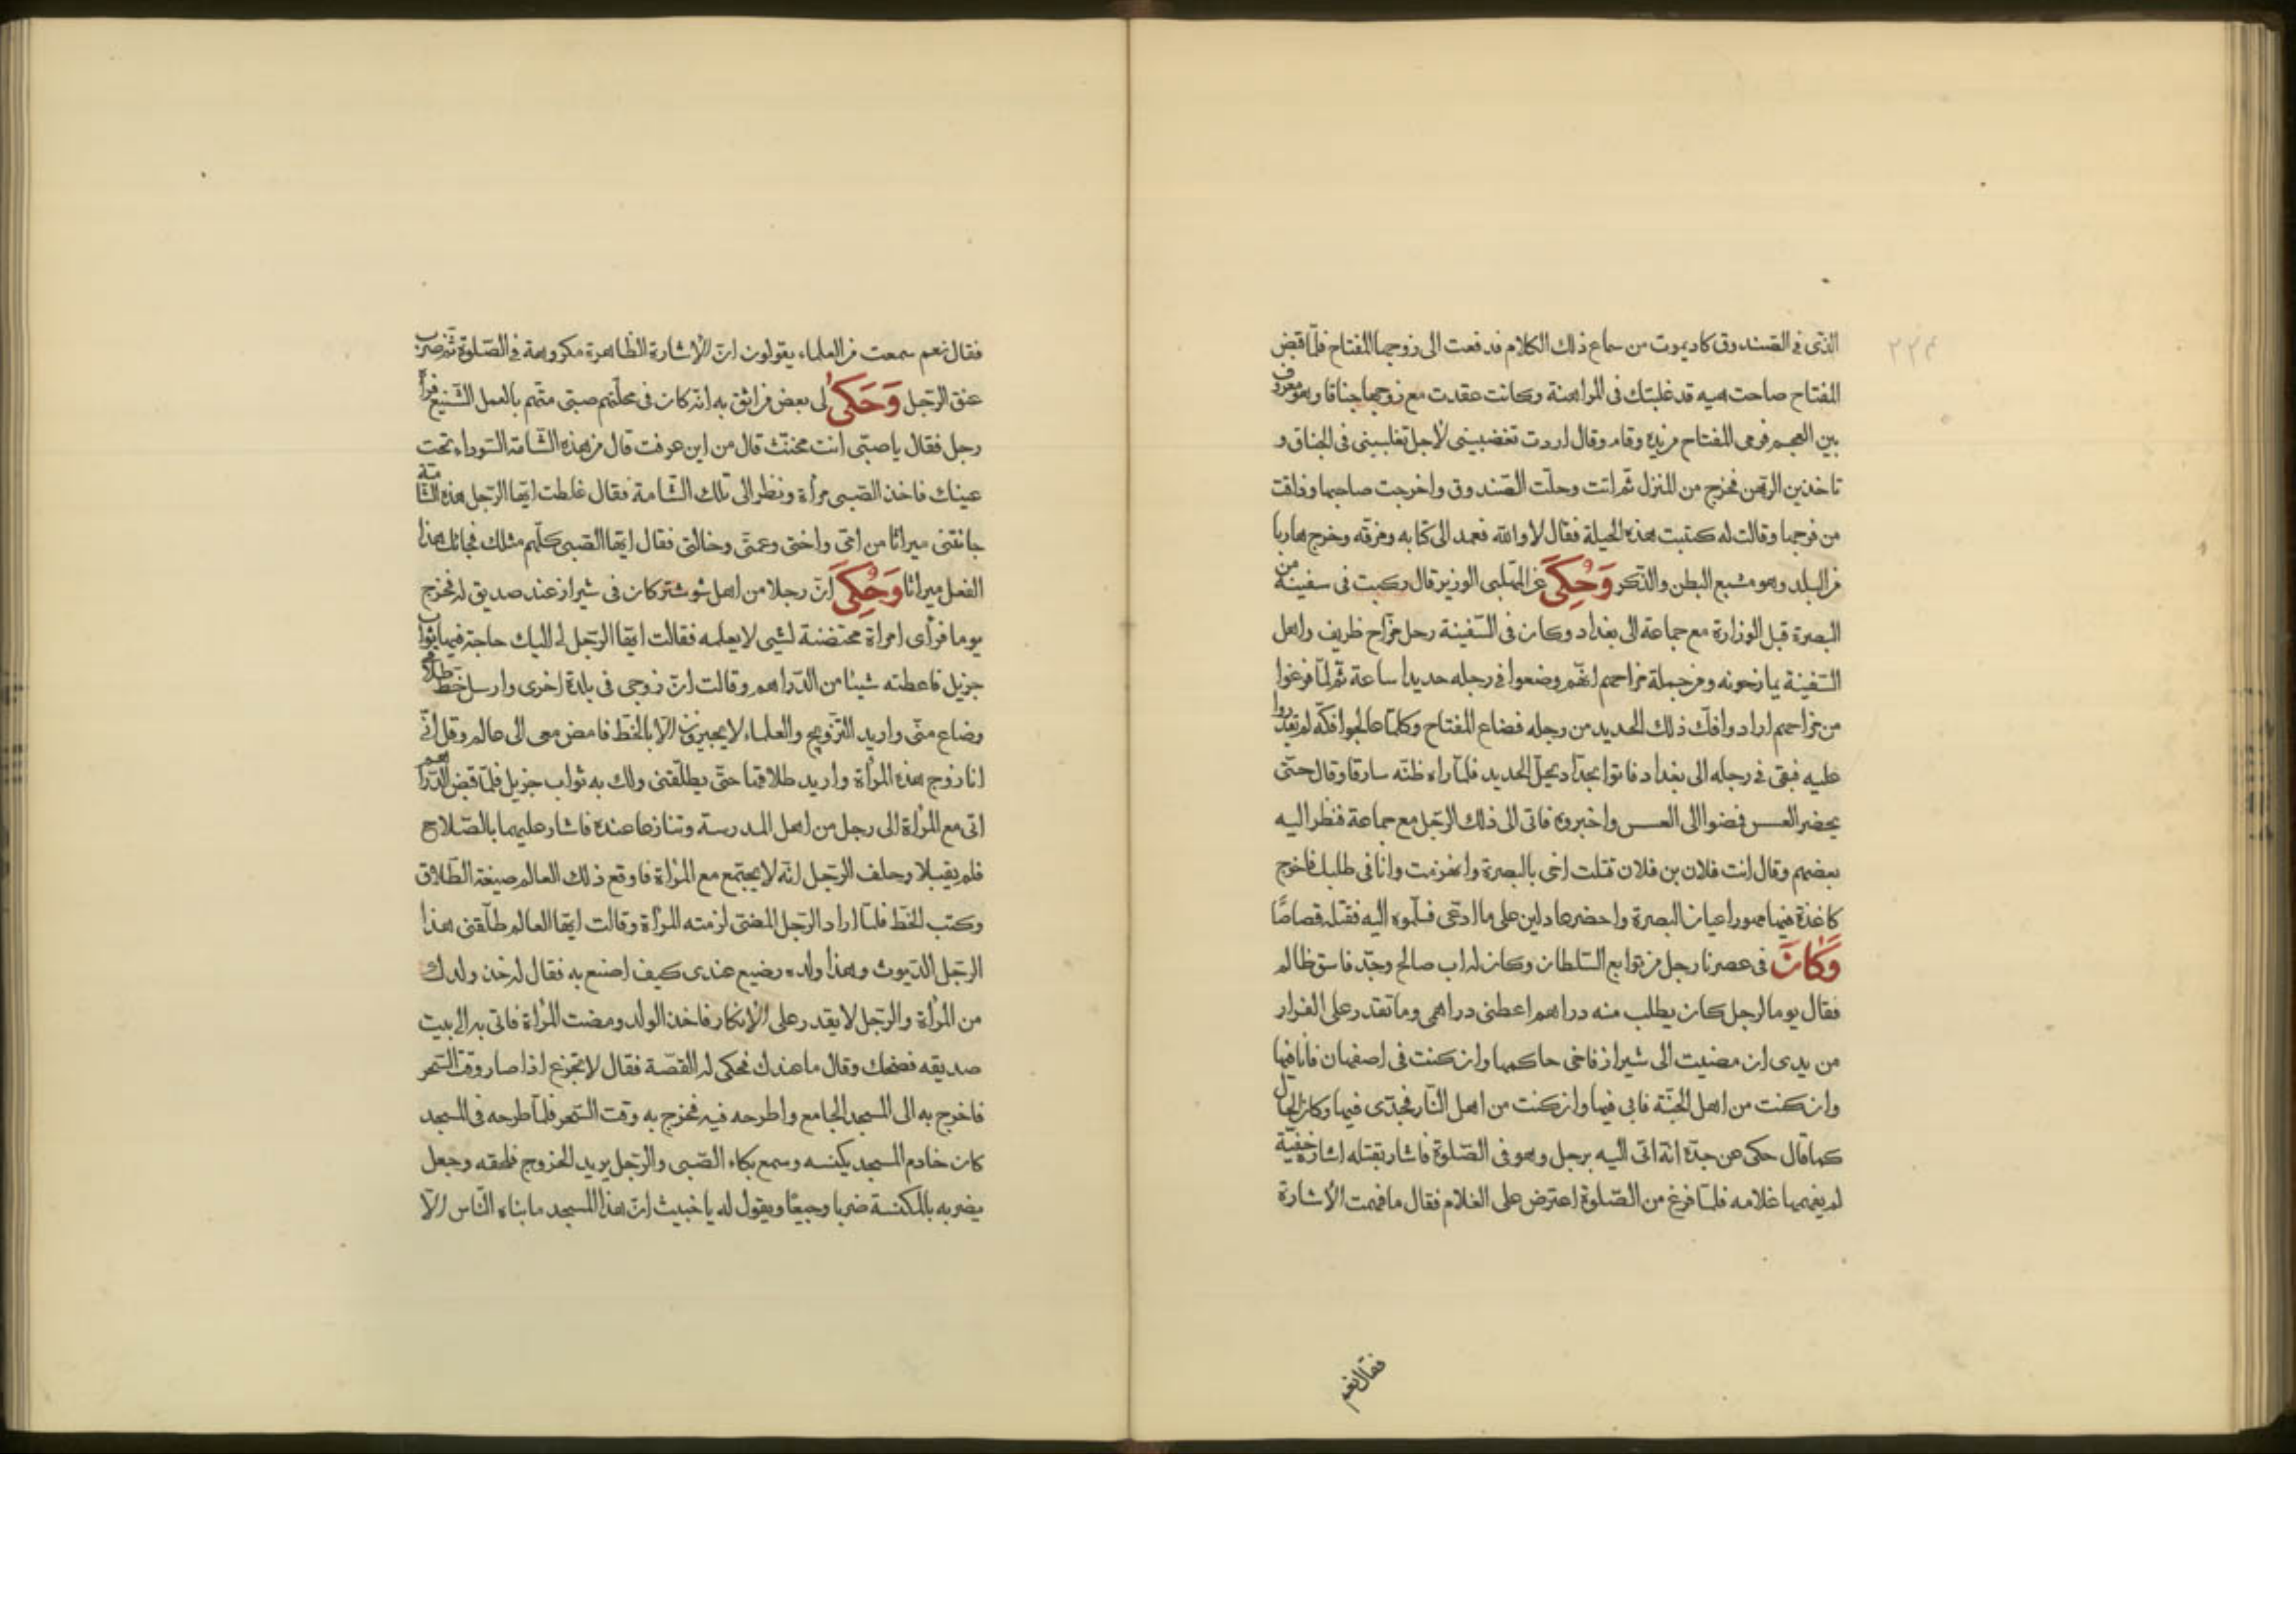 ٢٢٣
الذى فى الصندوق كاد يموت من سماع ذلك الكلام فدفعت الى زوجها المفتاح فلمّا قبض
المفتاح صاحت هيه قد غلبتك فى المراهنة وكانت عقدت مع زوجها جناقا وهو معروف
بين العجم فرمى المفتاح من يده وقام وقال اردت تغضبينى لاجل تغلبينى فى الجناق و
تاخذين الرهن فخرج من المنزل ثم اتت وحلّت الصندوق واخرجت صاحبها وذاقت
من فرجها وقالت له كتبت هذه الحيلة فقال لا والله فعمد الى كتابه ومزقه وخرج هاربا
من البلد وهو مشبع البطن والذكر وَحُكِىَ عن المهلبى الوزير قال ركبت فى سفينة من
البصرة قبل الوزارة مع جماعة الى بغداد وكان فى السّفينة رجل مزّاح ظريف واهل
السّفينة يمازحونه ومن جملة مزاحهم انهّم وضعوا فى رجله حديدا ساعة ثم لمّا فرغوا
من مزاحهم ارادوا فكّ ذلك الحديد من رجله فضاع المفتاح وكلّما عالجوا فكّه لم يقدروا
عليه فبقى فى رجله الى بغداد فاتوا بحدّاد يحلّ الحديد فلمّا راه ظنّه سارقا وقال حتّى
يحضر العسس فمضوا الى العسس واخبروه فاتى الى ذلك الرجّل مع جماعة فنظر اليه
بعضهم وقال انت فلان بن فلان قتلت اخى بالبصرة وانهزمت وانا فى طلبك فاخرج
كاغذة فيها مهور اعيان البصرة واحضر عادلين على ما ادعى فسلّموه اليه فقتله قصاصًا
وَكَانَ فى عصرنا رجل من توابع السّلطان وكان له اب صالح وجدّ فاسق ظالم
فقال يوما لرجل كان يطلب منه دراهم اعطنى دراهمى وما تقدر على الفرار
من يدى ان مضيت الى شيراز فاخى حاكمها وان كنت فى اصفهان فانا فيها
وان كنت من اهل الجنّة فابى فيها وان كنت من اهل النّار فجدّى فيها وكان الحال
كما قال حكى عن جدّه انّه اتى اليه برجل وهو فى الصّلوة فاشار بقتله اشارة خفيّة
لم يفهمها غلامه فلمّا فرغ من الصّلوة اعترض على الغلام فقال ما فهمت الاشارة
فقال نعم
فقال نعم سمعت من العلماء يقولون انّ الاشارة الظاهرة مكروهة فى الصّلوة ثم ضرب
عنق الرّجل وَحَكَى لى بعض من اثق به انّه كان فى محلّتهم صبى متّهم بالعمل الشّنيع فراه
رجل فقال يا صبّى انت مخنّث قال من اين عرفت قال من هذه الشّامة السّوداء تحت
عينك فاخذ الصّبى مرأة ونظر الى تلك الشّامة فقال غلطت ايّها الرّجل هذه الشّامة
جائتنى ميراثا من امّى واختى وعمتّى وخالتى فقال ايّها الصّبى كلّهم مثلك فجائك هذا
الفعل ميراثا وَحُكِىَ انّ رجلا من اهل شوشتر كان فى شيراز عند صديق له فخرج
يوما فرأى امراة محتضنة لشيى لا يعلمه فقالت ايّها الرّجل لى اليك حاجة فيها ثواب
جزيل فاعطته شيئا من الدّراهم وقالت انّ زوجى فى بلدة اخرى وارسل خطّ طلاقى
وضاع منّى واريد التّزويج والعلماء لا يجيزون الا بالخطّ فامض معى الى عالم وقل انّى
انا زوج هذه المرأة واريد طلاقها حتّى يطلّقنى ولك به ثواب جزيل فلمّا قبض الدّراهم
اتى مع المرأة الى رجل من اهل المدرسة وتنازعا عنده فاشار عليهما بالصّلاح
فلم يقبلا وحلف الرّجل انّه لا يجتمع مع المرأة فاوقع ذلك العالم صيغة الطّلاق
وكتب الخطّ فلمّا اراد الرّجل المضىّ لزمته المرأة وقالت ايّها العالم طلّقنى هذا
الرّجل الدّيوث وهذا ولده رضيع عندى كيف اصنع به فقال له خذ ولدك
من المرأة والرّجل لا يقدر على الانكار فاخذ الولد ومضت المرأة فاتى به الى بيت
صديقه فضحك وقال ما عندك فحكى له القصّة فقال لا تجزع اذا صار وقت السّحر
فاخرج به الى المسجد الجامع واطرحه فيه فخرج به وقت السّحر فلمّا طرحه فى المسجد
كان خادم المسجد يكنسه وسمع بكاء الصّبى والرّجل يريد الخروج فلحقه وجعل
يضربه بالمكنسة ضربا وجيعًا ويقول له يا خبيث انّ هذا المسجد ما بناه النّاس الّا